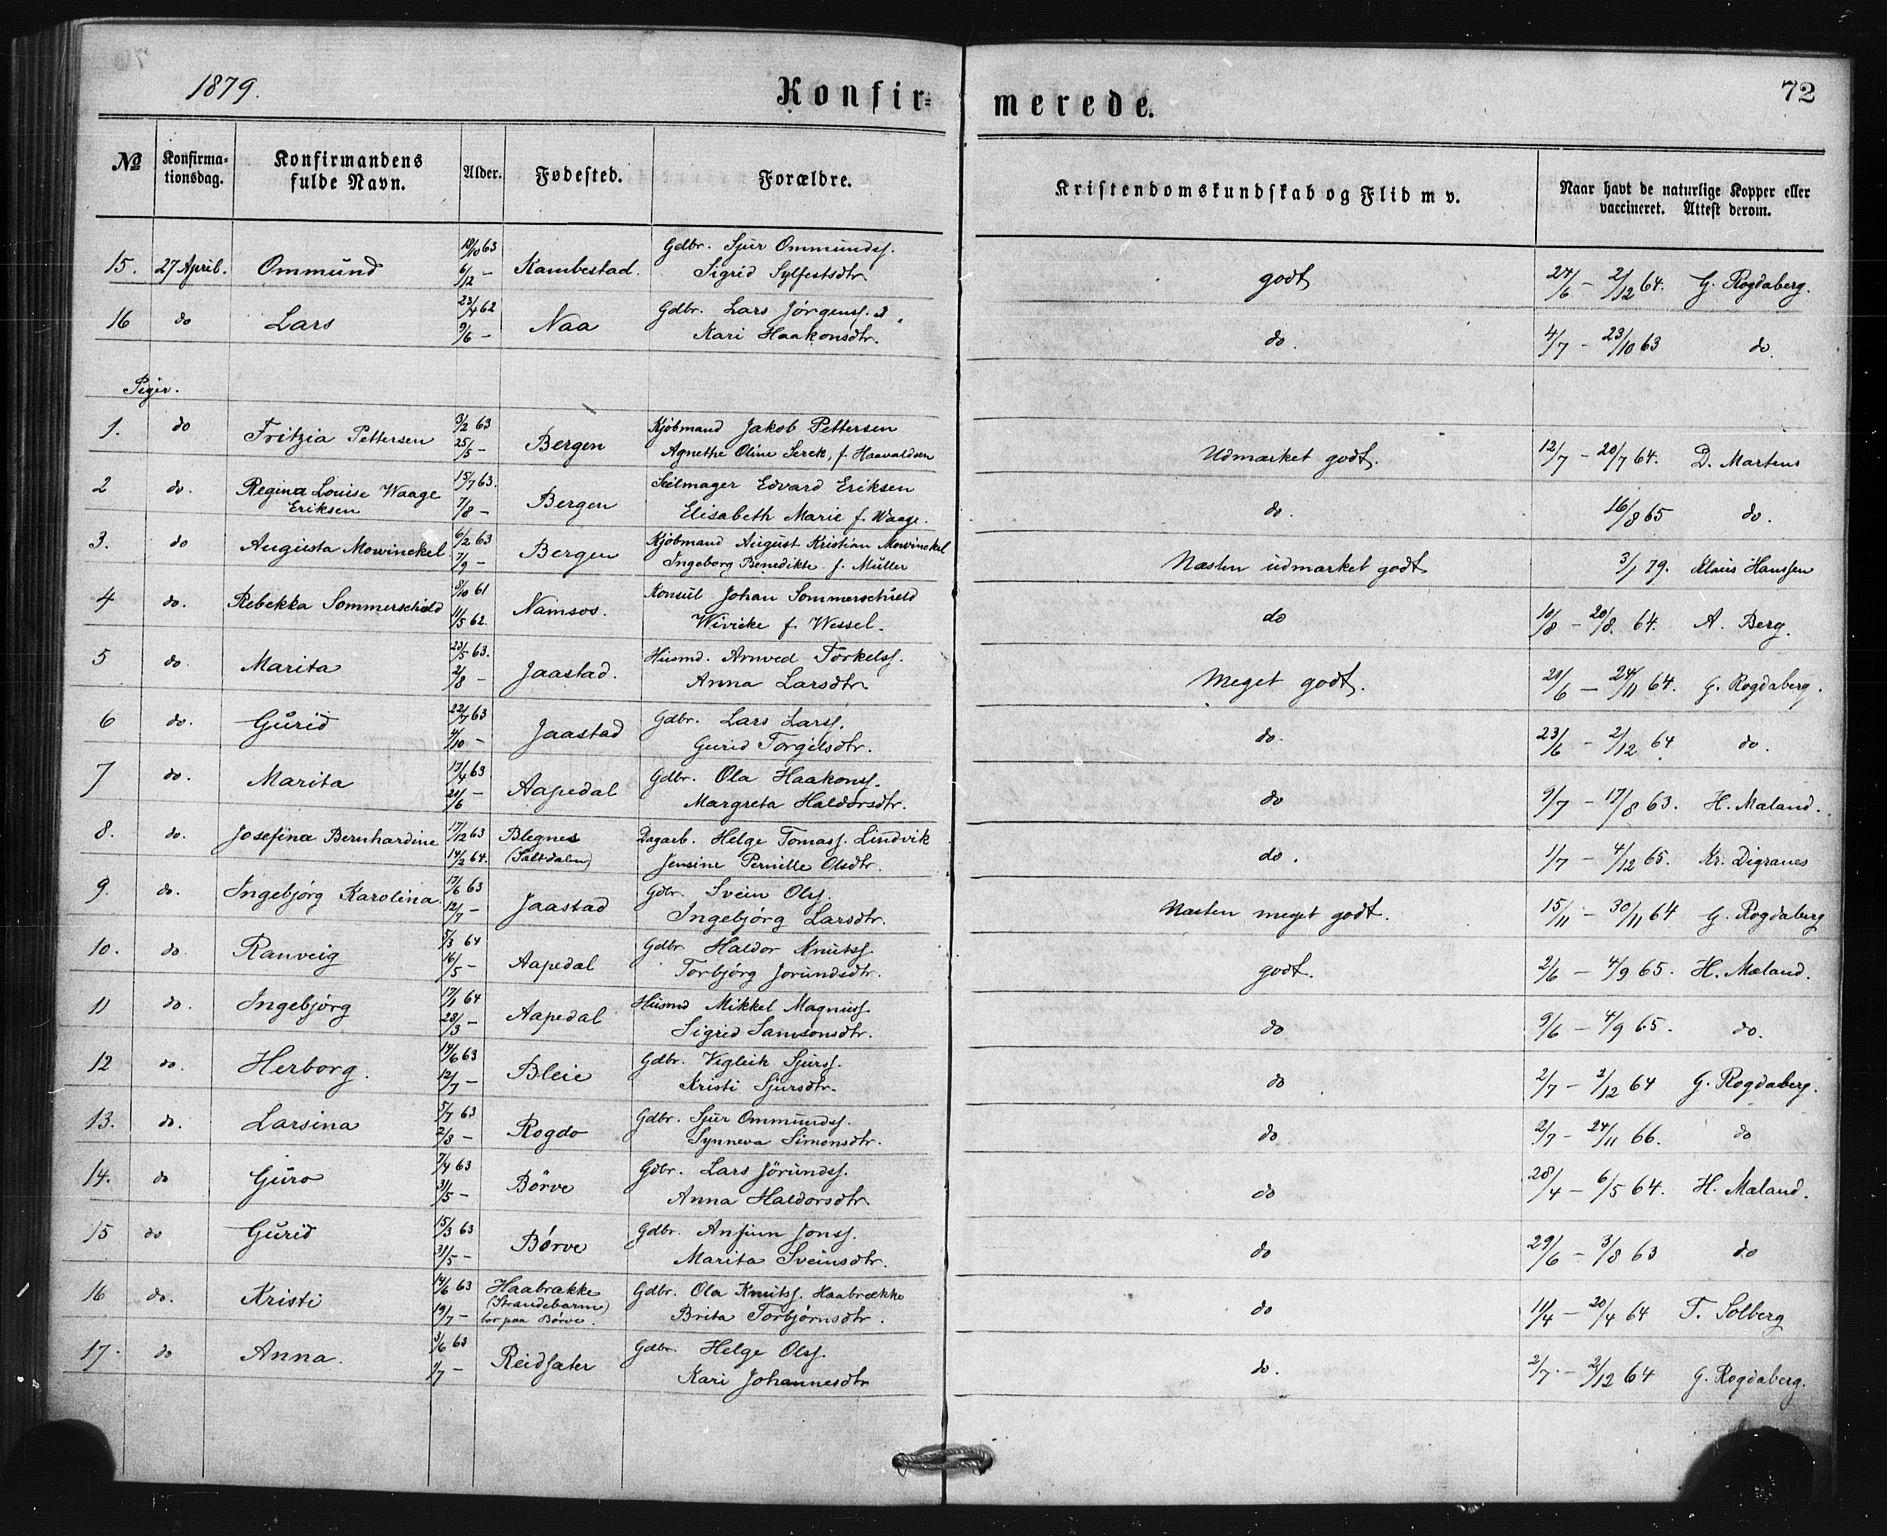 1879.
Konfir=
merede.
72
№
Konfirma-
tionsdag.
Konfirmandens
fulde Navn.
Alder.
Fødested.
Forældre.
Kristendomskundskab og Flid m v.
Naar havt de naturlige Kopper eller
vaccineret. Attest derom.
15. 27 April. Ommund 18/10 63 6/12 – Kambestad. Gdbr. Sjur Ommundss. godt 24/6 – 2/12 64. G. Rogdaberg.
Sigrid Sylfestsdtr.
16 do Lars 23/4 62 9/6 – Naa Gdbr. Lars Jørgenss. do. 4/7 – 23/10 63 do.
Kari Haakonsdtr.
Piger.
1. do Fritzia Pettersen 3/2 63 25/5 – Bergen Kjøbmand Jakob Pettersen Udmærket godt. 12/7 – 20/7 64. D. Martens
Agnethe Oline Serck, f. Haavaldsen
2 do. Regina Louise Waage 15/7 63. 7/8 – Bergen Seilmager Edvard Eriksen do. 16/8 65 do.
Eriksen Elisabeth Marie f. Waage.
3. do Augusta Mowinckel 6/2 63 7/9 – Bergen Kjøbmand August Kristian Mowinckel Næsten udmærket godt 3/1 79. Klaus Hanssen
Ingeborg Benedikte f. Müller
4 do. Rebekka Sommerschield 8/10 61 11/5 62. Namsos. Konsul Johan Sommerschield do 10/8 – 20/8. 64. A. Berg.
Wivicke f. Wessel.
5 do. Marita 23/5 63. 2/8 – Jaastad. Husmd. Arnved Torkelss. Meget godt. 21/6 – 24/11 64. G. Rogdaberg.
Anna Larsdtr.
6 do. Gurid 22/7 63 4/10 – Jaastad Gdbr. Lars Larss. do. 23/6 – 2/12 64 do.
Gurid Torgilsdtr.
7 do. Marita 17/4 63 21/6 – Aapedal Gdbr. Ola Haakonss. do 9/7 – 17/8 63. H. Mæland.
Margreta Haldorsdtr.
8. do. Josefina Bernhardine 17/12 63 14/2 64. Blegnes Dagarb. Helge Tomass. Lindvik do. 1/7 – 4/12 65. Kr. Digranes
(Saltdalen) Jensine Pernille Olsdtr.
9. do. Ingebjørg Karolina 17/6 63 12/7 – Jaastad Gdbr. Svein Olss. Næsten meget godt. 15/11 – 30/11 64 G. Rogdaberg
Ingebjørg Larsdtr.
10. do. Ranveig 5/3 64 16/5 – Aapedal Gdbr. Haldor Knutss. godt. 2/6 – 4/9 65. H. Mæland.
Torbjørg Jorundsdtr.
11 do. Ingebjørg 17/1 64 28/3 – Aapedal Husmd Mikkel Magnuss. do 9/6 – 4/9 65. do.
Sigrid Samsonsdtr.
12 do. Herborg. 14/6 63 12/7 – Bleie Gdbr. Vigleik Sjurss. do 2/7 – 2/12 64 G. Rogdaberg.
Kristi Sjursdtr.
13. do. Larsina 5/7 63 2/8 – Rogdo Gdbr. Sjur Ommundss. do 2/7 – 24/11 66. do
Synneva Simonsdtr.
14. do Guro 7/4 63 31/5 – Børve Gdbr. Lars Jörundss. do 28/4 – 6/5 64. H. Mæland.
Anna Haldorsdtr
15 do Gurid 15/3 63 31/5 – Børve Gdbr. Anfinn Jonss. do 29/6 – 3/8 63 do
Marita Sveinsdtr.
16 do. Kristi 14/6 63 19/7 – Haabrække Gdbr. Ola Knutss. Haabrække do 11/4 – 20/4 64 T. Solberg
(Strandebarm) Brita Torbjørnsdtr.
bor paa Børve.
17. do Anna. 3/6 63 1/7 – Reidsæter Gdbr. Helge Olss. do. 2/7. – 2/12 64 G. Rogdaberg.
Kari Johannesdtr